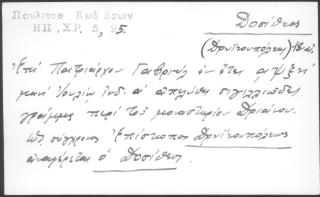 Πουλίτσα Κωδ Δρυιν
ΗΠ. ΧΡ. 5, 95.
Δοσίθεος
(Δρυϊνουπόλεως) 18 αἰ.
Ἐπί Πατριάρχου Γαβριήλ ἐν ἔτει αψξζ
μηνί Ἰουλίῳ ἰνδ. αἱ ἀπελύθη σιγιλλιῶδες
γράμμα περί τοῦ μοναστηρίου Δριάνου.
Ὡς σύγχρονος Ἐπίσκοπος Δρυϊνουπόλεως
ἀναφέρεται ὁ Δοσίθεος.